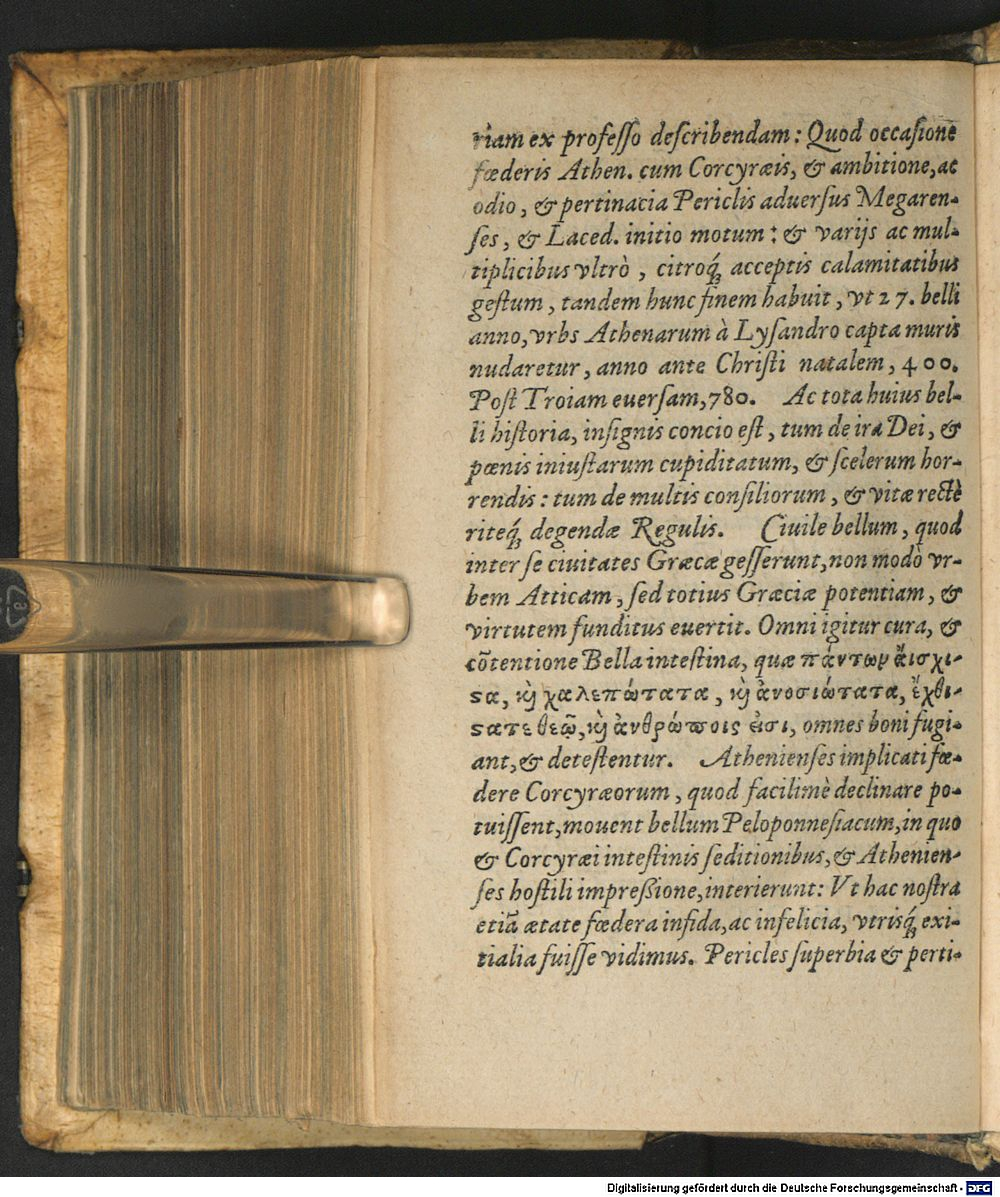 riam ex professo describendam: Quod occasione
fœderis Athen. cum Corcyræis, & ambitione, ac
odio, & pertinacia Periclis aduersus Megaren-
ses, & Laced. initio motum: & varijs ac mul-
tiplicibus vltrò, citroq́ꝫ acceptis calamitatibus
gestum, tandem hunc finem habuit, vt 27. belli
anno, vrbs Athenarum à Lysandro capta muris
nudaretur, anno ante Christi natalem, 400.
Post Troiam euersam, 780. Ac tota huius bel-
li historia, insignis concio est, tum de ira Dei, &
pœnis iniustarum cupiditatum, & scelerum hor-
rendis: tum de multis consiliorum, & vitæ rectè
riteq́ꝫ degendæ Regulis. Ciuile bellum, quod
inter se ciuitates Græcæ gesserunt, non modò vr-
bem Atticam, sed totius Græciæ potentiam, &
virtutem funditus euertit. Omni igitur cura, &
cōtentione Bella intestina, quæ πάντων ἄισχι-
ϛα, ϗ̀ χαλεπώτατα, ϗ̀ ἀνοσιώτατα, ἔχθι-
ϛατε θεῷ, ϗ̀ ἀνθρώποις ἐισι, omnes boni fugi-
ant, & detestentur. Athenienses implicati fœ-
dere Corcyræorum, quod facilimè declinare po-
tuissent, mouent bellum Peloponnesiacum, in quo
& Corcyræi intestinis seditionibus, & Athenien-
ses hostili impreßione, interierunt: Vt hac nostra
etiā ætate fœdera infida, ac infelicia, vtrisq́ꝫ exi-
tialia fuisse vidimus. Pericles superbia & perti-
Digitalisierung gefördert durch die Deutsche Forschungsgemeinschaft - DFG